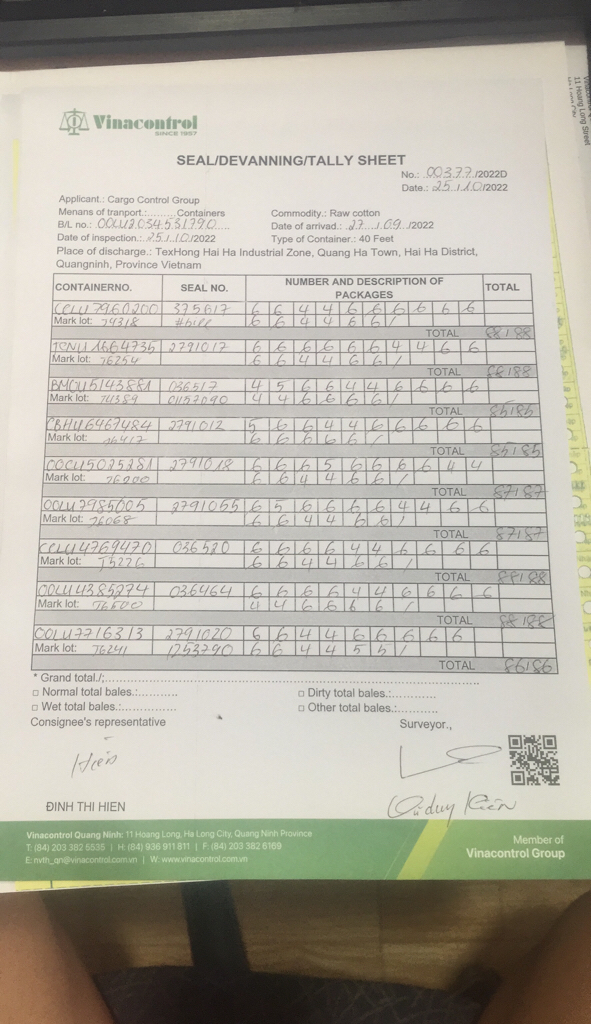 Vinacontrol
SINCE 1957
SEAL/DEVANNING/TALLY SHEET
No.: 00377/2022D
Date.: 25/10/2022
Applicant.: Cargo Control Group
Menans of tranport.:.........Containers
Commodity.: Raw cotton
B/L no.: OOLU2034531790
Date of arrivad.: 27/09/2022
Date of inspection.: 25/10/2022
Type of Container.: 40 Feet
Place of discharge.: TexHong Hai Ha Industrial Zone, Quang Ha Town, Hai Ha District,
Quangninh, Province Vietnam
CONTAINERNO. SEAL NO. NUMBER AND DESCRIPTION OF PACKAGES TOTAL
375617 6 6 4 4 6 6 6 6 6 6
Mark lot: 74318 6 6 4 4 6 6 /
TOTAL 88188
2791017 6 6 6 6 6 6 4 4 6 6
Mark lot: 76254 6 6 4 4 6 6 /
TOTAL 88188
BMOU5143881 036517 4 5 6 6 4 4 6 6 6 6
Mark lot: 74389 01157090 4 4 6 6 6 6 /
TOTAL 85185
CBHU6467484 2791012 5 6 6 4 4 6 6 6 6 6
Mark lot: 6 6 6 6 6 /
TOTAL 85185
OOCU5025281 2791018 6 6 6 5 6 6 6 6 4 4
Mark lot: 76200 6 6 4 4 6 6 /
TOTAL 87187
OOLU7985005 2791055 6 5 6 6 6 6 4 4 6 6
Mark lot: 76068 6 6 4 4 6 6 /
TOTAL 87187
CCLU4769470 036520 6 6 6 6 4 4 6 6 6 6
Mark lot: 75226 6 6 4 4 6 6 /
TOTAL 88188
OOLU4385274 036464 6 6 6 6 4 4 6 6 6 6
Mark lot: 76500 4 4 6 6 6 6 /
TOTAL 88188
OOLU7716313 2791020 6 6 4 4 6 6 6 6 6
Mark lot: 76241 1253790 6 6 4 4 5 5 /
TOTAL 86186
* Grand total./:
□ Normal total bales.:
□ Dirty total bales.:
□ Wet total bales.:
□ Other total bales.:
Consignee's representative
Surveyor.,
Hien
Vũ duy Kiên
ĐINH THI HIEN
Vinacontrol Quang Ninh: 11 Hoang Long, Ha Long City, Quang Ninh Province
T: (84) 203 382 5535 | H: (84) 936 911 811 | F: (84) 203 382 6169
E: nvth_qn@vinacontrol.com.vn | W: www.vinacontrol.com.vn
Member of
Vinacontrol Group
11 Hoang Long Street